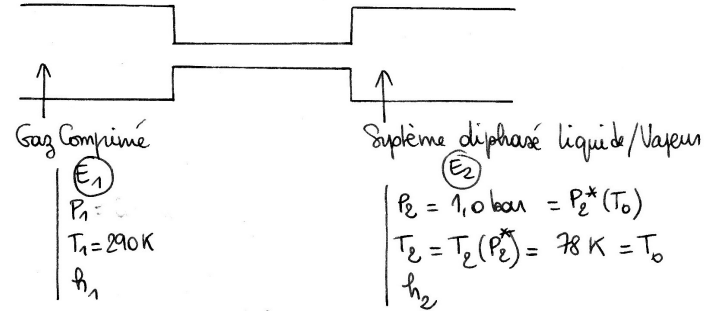 Gaz Comprimé
E₁
P₁ =
T₁ = 290 K
h₁
Système diphasé liquide/Vapeur
E₂
P₂ = 1,0 bar = P₂*(T₀)
T₂ = T₂(P₂*) = 78 K = T₀
h₂